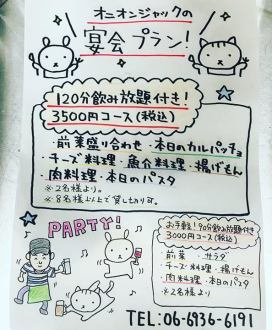 オニオンジャックの
宴会プラン!
120分飲み放題付き!
3500円コース(税込)
前菜盛り合わせ・本日のカルパッチョ
チーズ料理・魚介料理・揚げもん
・肉料理・本日のパスタ
※2名様より。
※8名様以上で貸し切りす。
PARTY!
お手軽!90分飲み放題付き
3000円コース(税込)
前菜・サラダ
チーズ料理・揚げもん
・肉料理・本日のパスタ
※2名様より
TEL:06-6936-6191